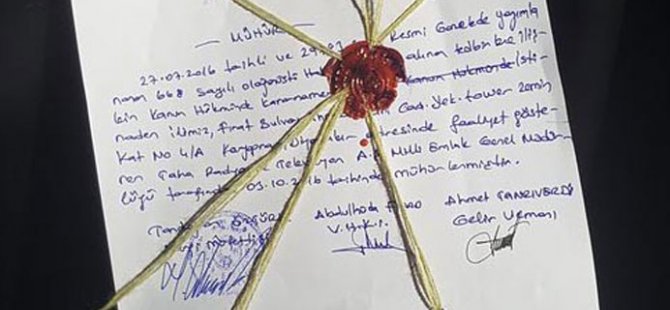 MÜHÜR
27.07.2016 tarihli ve 29783 Resmi Gazetede yayımla
nan 668 sayılı olağanüstü Hal alınan tedbirlere iliş-
kin Kanun Hükmünde Kararname Kanun Hükmünde isti-
naden ilimiz, Fırat Bulvarı Cad. Yek. tower zemin
Kat No 4/A Kayapınar/Diyarbakır adresinde faaliyet göste-
ren Taha Radyo Televizyon A.Ş Milli Emlak Genel Müdür-
lüğü tarafından 03.10.2016 tarihinde mühürlenmiştir.
Abdulhada Ahmet TANRIVERDİ
V.H.K.İ. Gelir Uzmanı